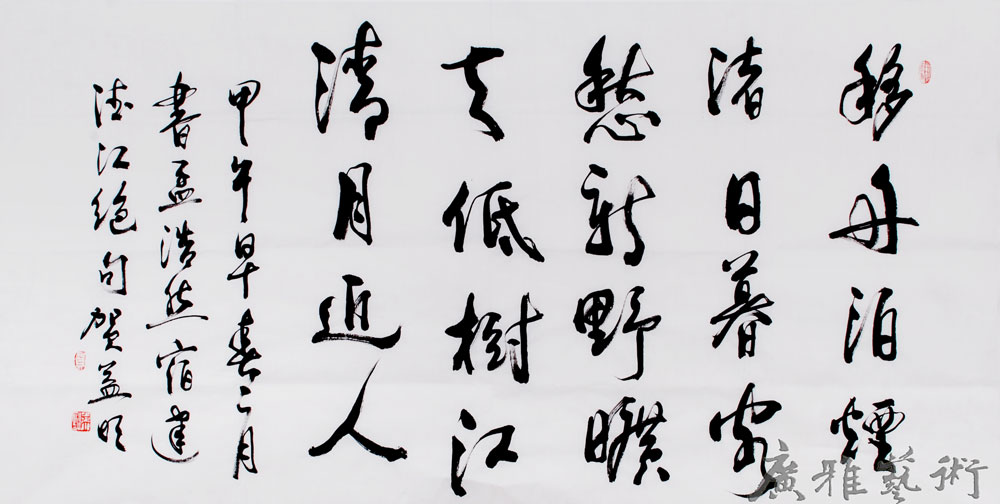 移舟泊煙
渚日暮客
愁新野曠
天低樹江
清月近人
甲午早春二月
書孟浩然宿建
德江絕句賀益明
廣雅藝術